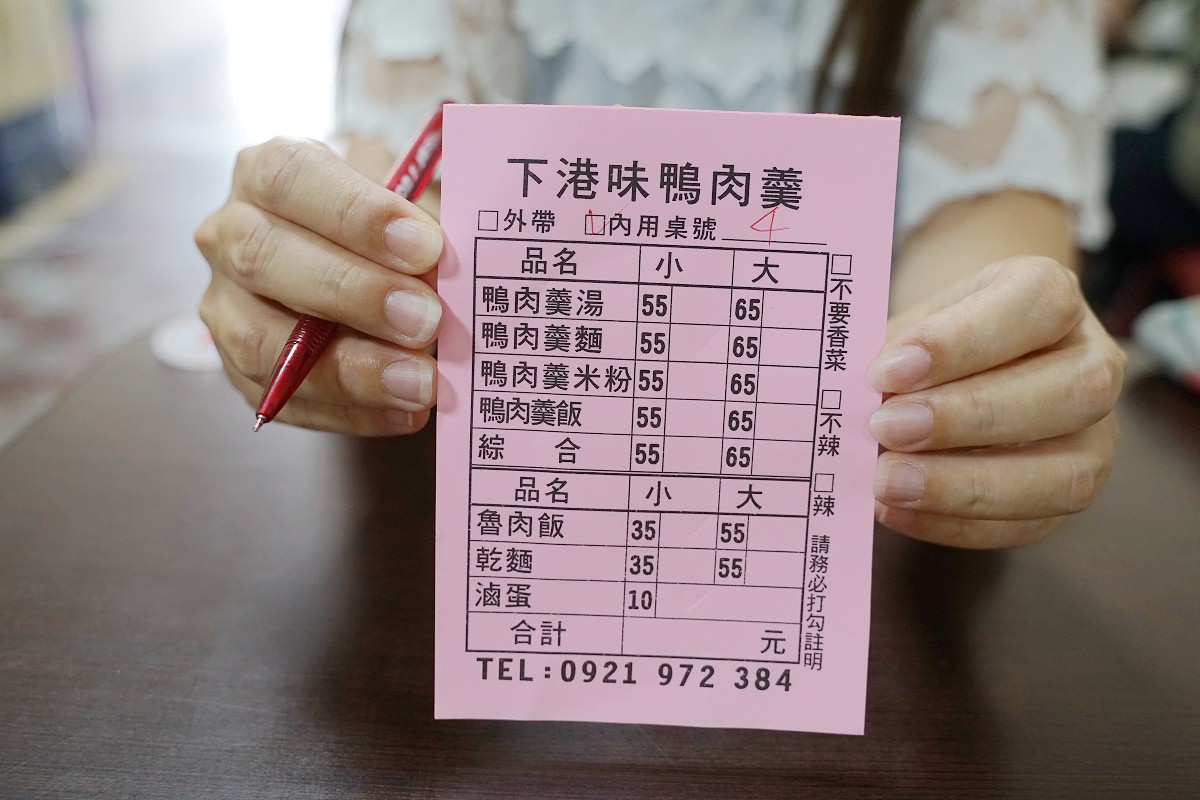 下港味鴨肉羹
□外帶 ☑內用桌號 4
品名 小 大
鴨肉羹湯 55 65
鴨肉羹麵 55 65
鴨肉羹米粉 55 65
鴨肉羹飯 55 65
綜 合 55 65
品名 小 大
魯肉飯 35 55
乾麵 35 55
滷蛋 10
合計 元
TEL:0921 972 384
□不要香菜
□不辣
□辣
請務必打勾註明